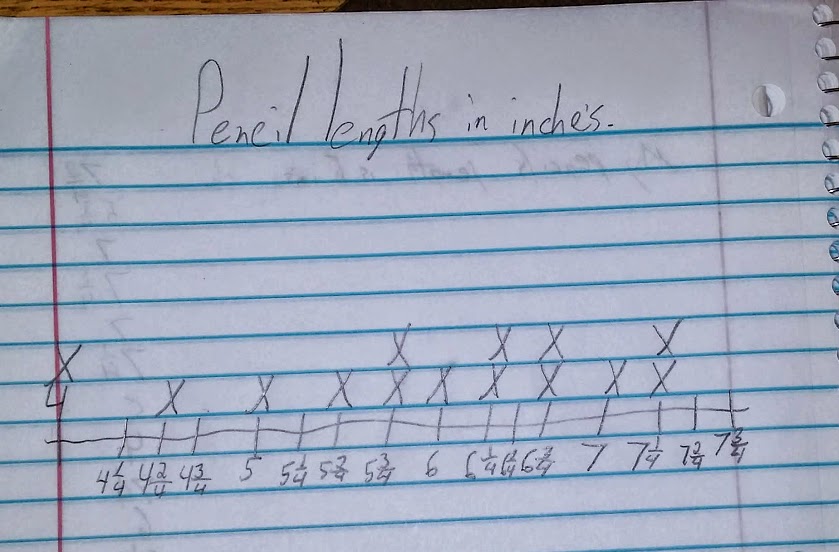 Pencil lengths in inche's.
X X X X
X X X X X X X X X X
4
4 1/4 4 2/4 4 3/4 5 5 1/4 5 2/4 5 3/4 6 6 1/4 6 2/4 6 3/4 7 7 1/4 7 2/4 7 3/4